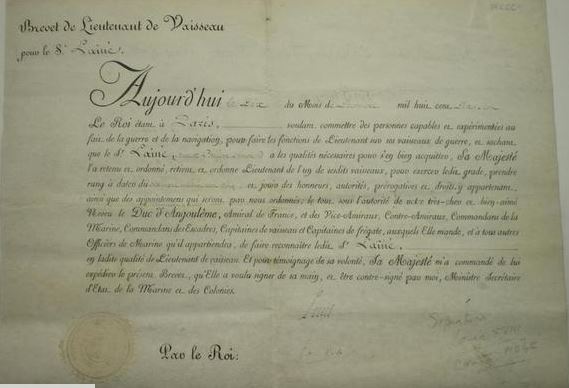 Brevet de Lieutenant de Vaisseau
pour le Sr. Lainé.
Aujourd'hui du Mois de mil huit cent
Le Roi étant à Paris, voulant commettre des personnes capables et expérimentées au
fait de la guerre et de la navigation, pour faire les fonctions de Lieutenant sur ses vaisseaux de guerre, et sachant
que le Sr. Lainé a les qualités nécessaires pour s'en bien acquitter, Sa Majesté
l'a retenu et ordonné, retient et ordonne Lieutenant de l'un de sesdits vaisseaux, pour exercer ledit grade, prendre
rang à dater du et jouir des honneurs, autorités, prérogatives et droits y appartenant,
ainsi que des appointemens qui seront par nous ordonnés; le tout sous l'autorité de notre très-cher et bien-aimé
Neveu le Duc d'Angoulême, Amiral de France, et des Vice-Amiraux, Contre-Amiraux, Commandans de la
Marine, Commandans des Escadres, Capitaines de vaisseau et Capitaines de frégate, auxquels Elle mande, et à tous autres
Officiers de Marine qu'il appartiendra, de faire reconnaître ledit Sr. Lainé,
en ladite qualité de Lieutenant de vaisseau. Et pour témoignage de sa volonté, Sa Majesté m'a commandé de lui
expédier le présent Brevet, qu'Elle a voulu signer de sa main, et être contre-signé par moi, Ministre Secrétaire
d'Etat de la Marine et des Colonies.
Louis
Par le Roi: